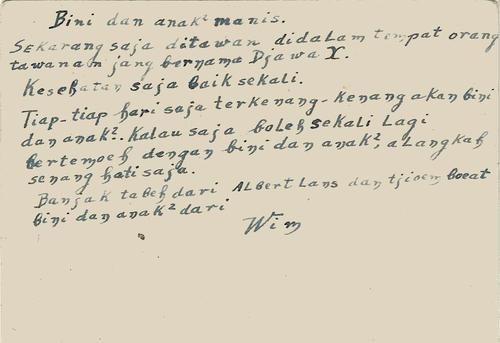 Bini dan anak² manis.
Sekarang saja ditawan didalam tempat orang
tawanan jang bernama Djawa X.
Kesehatan saja baik sekali.
Tiap-tiap hari saja terkenang-kenang akan bini
dan anak². Kalau saja boleh sekali lagi
bertemoeh dengan bini dan anak², alangkah
senang hati saja.
Banjak tabeh dari Albert Lans dan tjioem boeat
bini dan anak² dari
Wim